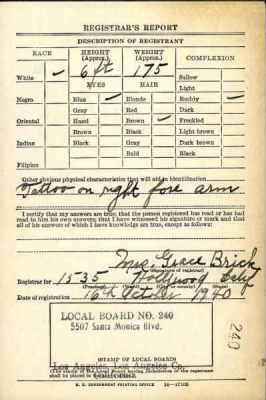 REGISTRAR'S REPORT
DESCRIPTION OF REGISTRANT
RACE
HEIGHT (Approx.)
WEIGHT (Approx.)
COMPLEXION
White
6 ft
175
Sallow
EYES
HAIR
Light
Negro
Blue
Blonde
Ruddy
Gray
Red
Dark
Oriental
Hazel
Brown
Freckled
Brown
Black
Light brown
Indian
Black
Gray
Dark brown
Bald
Black
Filipino
Other obvious physical characteristics that will aid in identification
Tattoo on right fore arm
I certify that my answers are true; that the person registered has read or has had
read to him his own answers; that I have witnessed his signature or mark and that
all of his answers of which I have knowledge are true, except as follows:
Mrs. Grace Brick
(Signature of registrar)
Registrar for 1535 Hollywood Calif
(Precinct) (City or county) (State)
Date of registration 16th October 1940
LOCAL BOARD NO. 240
5507 Santa Monica Blvd.
240
Los Angeles, Los Angeles Co.
(STAMP OF LOCAL BOARD)
(The stamp of the Local Board having jurisdiction of the registrant
shall be placed in the above space.)
U. S. GOVERNMENT PRINTING OFFICE